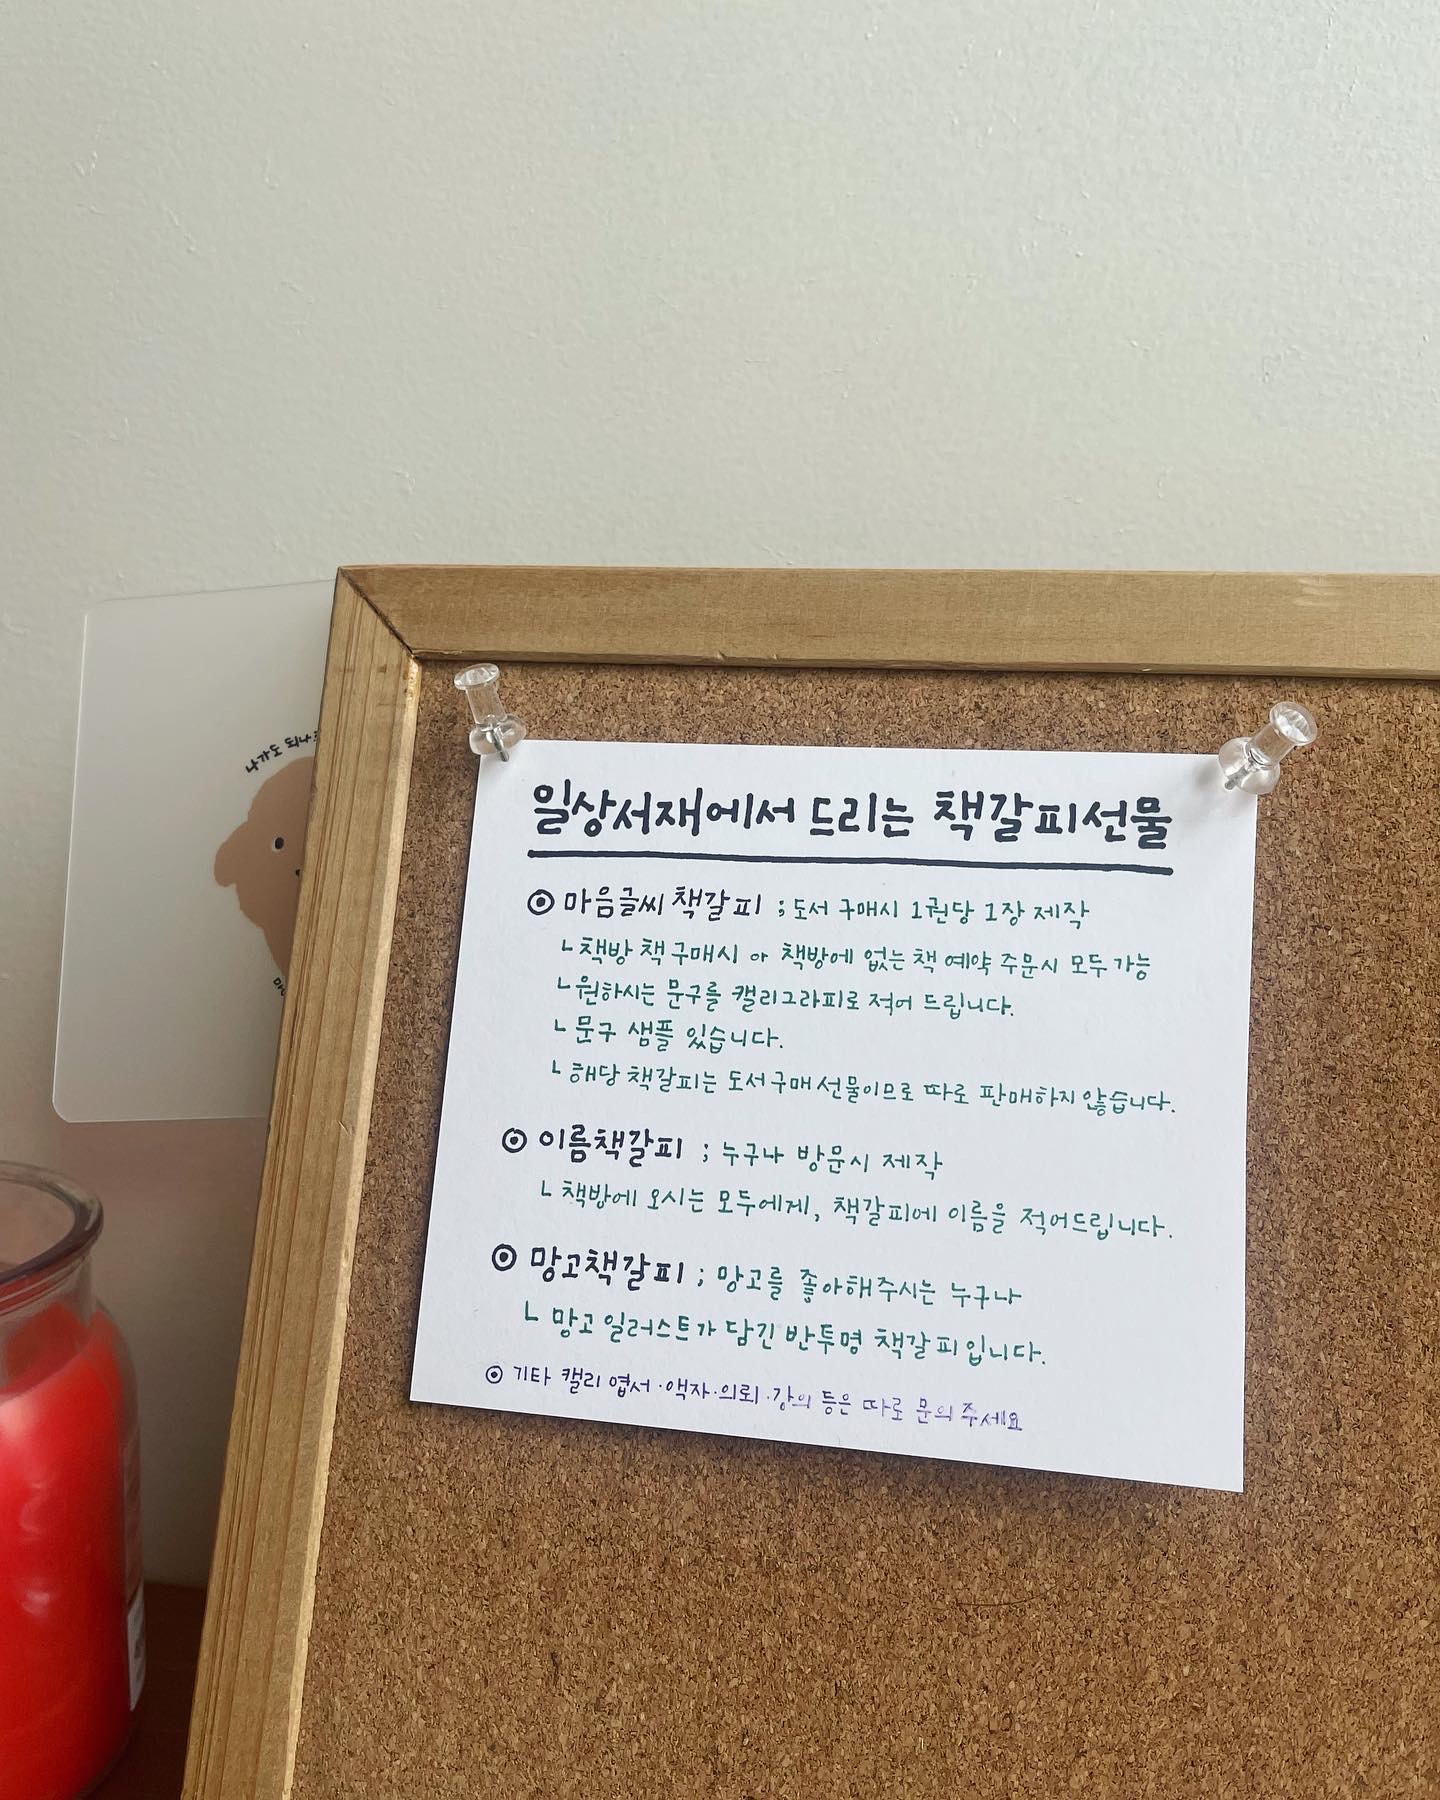 나가도 되나
일상서재에서 드리는 책갈피선물
◉ 마음글씨 책갈피 ; 도서 구매시 1권당 1장 제작
ㄴ책방 책 구매시 or 책방에 없는 책 예약 주문시 모두 가능
ㄴ원하시는 문구를 캘리그라피로 적어 드립니다.
ㄴ문구 샘플 있습니다.
ㄴ해당 책갈피는 도서구매선물이므로 따로 판매하지 않습니다.
◉ 이름책갈피 ; 누구나 방문시 제작
ㄴ책방에 오시는 모두에게, 책갈피에 이름을 적어드립니다.
◉ 망고책갈피 ; 망고를 좋아해주시는 누구나
ㄴ망고 일러스트가 담긴 반투명 책갈피입니다.
◉ 기타 캘리 엽서·액자·의뢰·강의 등은 따로 문의 주세요